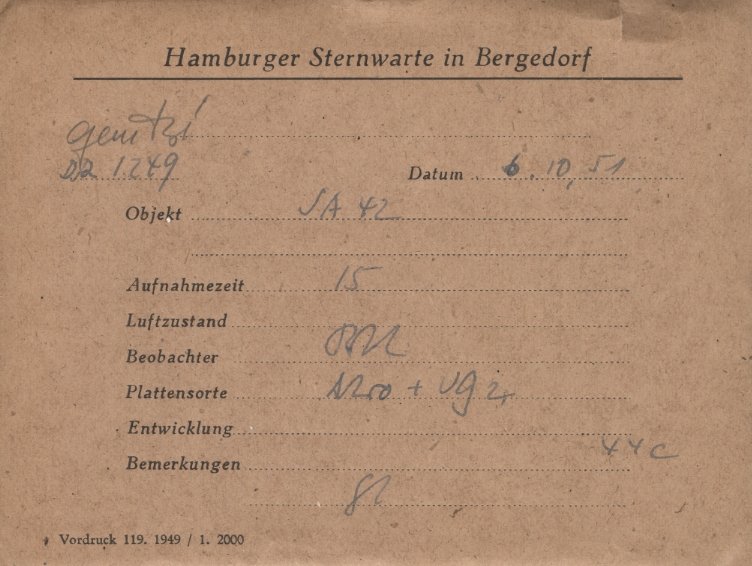 Hamburger Sternwarte in Bergedorf
D2 1249
Datum 6.10.51
Objekt SA 42
Aufnahmezeit 15
Luftzustand
Beobachter
Plattensorte + UG 2
Entwicklung
44c
Bemerkungen
Vordruck 119. 1949 / 1. 2000